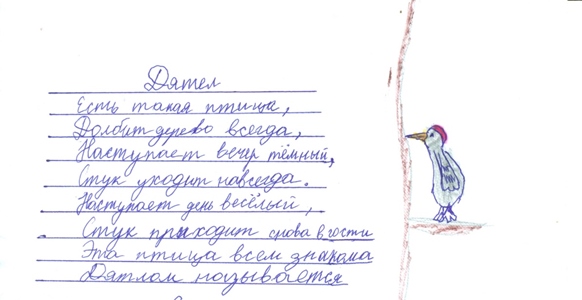 Дятел
Есть такая птица,
Долбит дерево всегда,
Наступает вечер тёмный,
Стук уходит навсегда.
Наступает день весёлый,
Стук приходит снова в гости
Эта птица всем знакома
Дятлом называется